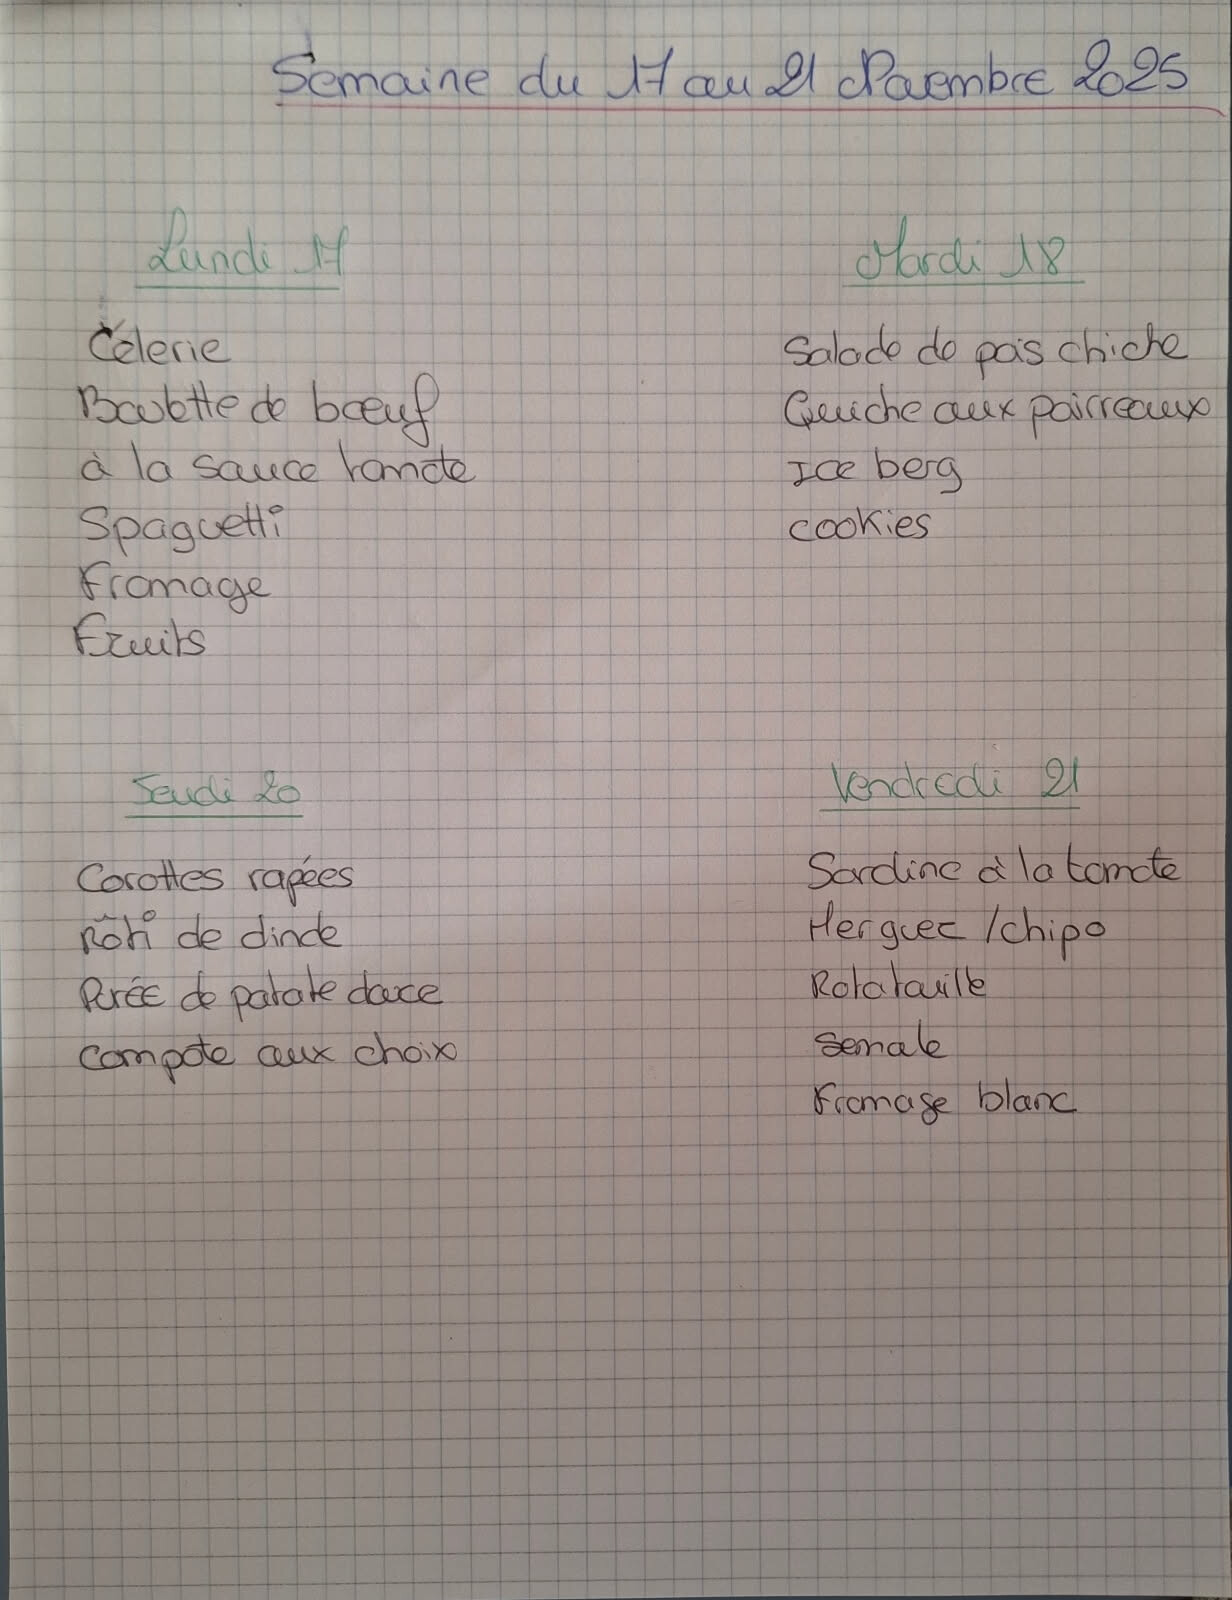 Semaine du 17 au 21 Novembre 2025
Lundi 17
Célerie
Boulette de bœuf
à la sauce tomate
Spaguetti
Fromage
Fruits
Mardi 18
Salade de pois chiche
Quiche aux poirreaux
Ice berg
cookies
Jeudi 20
Carottes rapées
Rôti de dinde
Purée de patate douce
Compote aux choix
Vendredi 21
Sardine à la tomate
Merguez / chipo
Ratatouille
Semoule
Fromage blanc